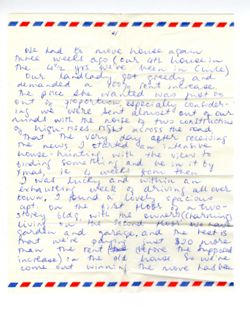 We had to move house again
three weeks ago (our 4th house in
the 4½ yrs we've been in Chile)
Our landlady got greedy and
demanded a 100% rent increase
The price she wanted was just so
out of proportion, especially consider-
ing we were sent almost out of our
minds with the noise of two constructions
of high-rises right across the road
that the very day after receiving
the news, I started an intensive
house-hunt with the view to
finding something and be in it by
weeks from then
I was lucky and within an
exhausting week of driving all over
town, I found a lovely, spacious
apt. on the first floor of a two-
storey bldg with the owners (charming)
living on the floor
garden and garage, and the best is
that we're paying just $20 more
than the rent (before the
increase) in the old house. So we've
come out winning. The move has been